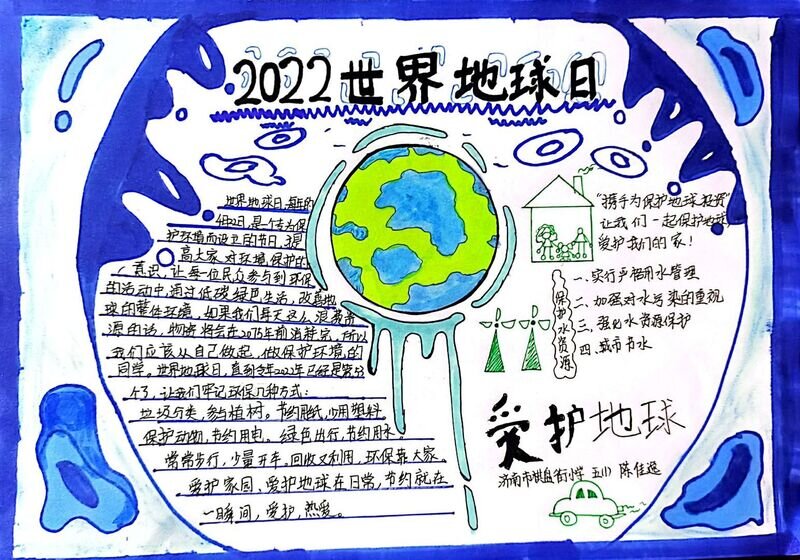 2022世界地球日
世界地球日,每年的
4月22日,是个专为保
护环境而设立的节日,提
高大家对环境保护的
意识,让每一位民众参与到环保
的活动中,通过低碳绿色生活,改善地
球的整体环境,如果我们每天这么浪费资
源的话,物资将会在2075年前消耗完,所以
我们应该从自己做起,做保护环境的
同学。世界地球日,直到今年2022年已经是第53
个了,让我们牢记环保几种方式:
垃圾分类,参与植树,节约用纸,少用塑料,
保护动物,节约用电、绿色出行,节约用水。
常常步行,少量开车,回收又利用,环保靠大家。
爱护家园、爱护地球在日常,节约就在
一瞬间,爱护,热爱。
“携手为保护地球投资”
让我们一起保护地球
爱护我们的家!
保护水资源
一、实行严格用水管理
二、加强对水污染的重视
三、强化水资源保护
四、城市节水
爱护地球
济南市棋盘街小学 五(1) 陈佳